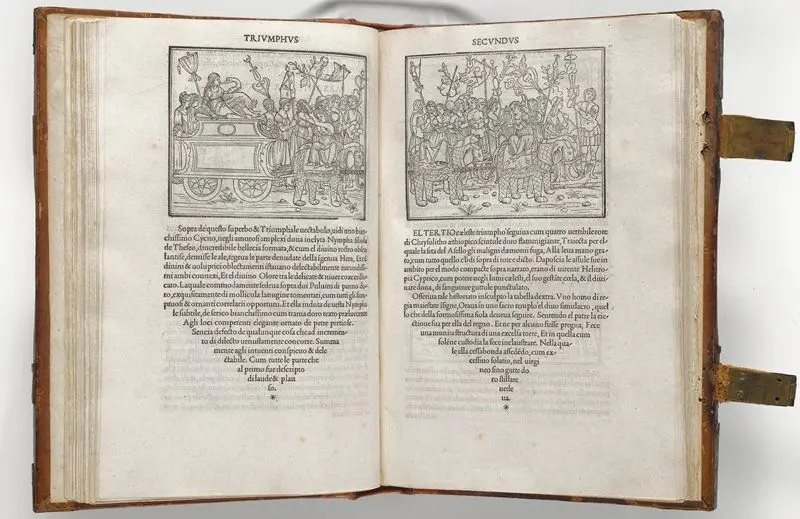 TRIVMPHVS
Sopra de questo superbo & Triumphale uectabulo, uidi uno bian
chissimo Cycno, negli amorosi amplexi duna inclyta Nympha filiola
de Theseo, dincredibile bellecia formata, & cum el diuino rostro obs
culantise, demisse le ale, tegeua le parte denudate della igenua Hera, Et cũ
diuini & uoluptici oblectamenti istauano delectabilmente iucundissi
mi ambi connexi, Et el diuino Olore tra le delicate & niuee coxe collo-
cato. Laquale commodamente sedeua sopra dui Puluini di panno do-
ro, exquisitamente di mollicula lanugine tomentati, cum tutti gli sum
ptuosi & ornanti correlarii opportuni. Et ella induta de uesta Nympha
le subtile, de serico bianchissimo cum trama doro texto præluccente
Agli loci competenti elegante ornato de petre pretiose.
Sencia defecto de qualunque cosa chead incremen-
to di dilecto uenustamente concorre. Summa
mente agli intuenti conspicuo & dele
ctabile. Cum tutte le parte che
al primo fue descripto
di laude & plau
so.
*
SECVNDVS
EL TERTIO cæleste triumpho seguiua cum quatro uertibile rote
di Chrysolitho æthiopico scintule doro flammigiante, Traiecta per el
quale la seta del Asello gli maligni dæmonii fuga, Alla leua mano gra-
to, cum tutto quello chdi sopra di rote e dicto. Daposcia le assule sue in
ambito per el modo compacte sopra narrato, erano di uirente Helitro-
pia Cyprico, cum potere negli lumi cælesti, el suo gestãte cœla, & il diui-
nare dona, di sanguinee guttule punctulato.
Offeriua tale historiato insculpto la tabella dextra. Vno homo di re-
gia maiestate isigne, Oraua in uno sacro templo el diuo simulacro, quel
lo che della formosissima fiola deueua seguire. Sentendo el patre la eie-
ctione sua per ella del regno. Et ne per alcuno fusse pregna, Fece
una munita structura di una excelsa torre, Et in quella cum
solẽne custodia la fece inclaustrare. Nella qua
le ella cessabonda assedẽdo, cum ex-
cessiuo solatio, nel uirgi
neo sino gutte do
ro stillare
uede
ua.
*